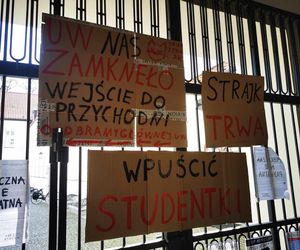 UW NAS
ZAMKNEŁO
WEJŚCIE DO
PRZYCHODNI
OD BRAMY GŁÓWNEJ UW
STRAJK
TRWA
WPUŚCIĆ
STUDENTKI
CZNA
E
ATNA